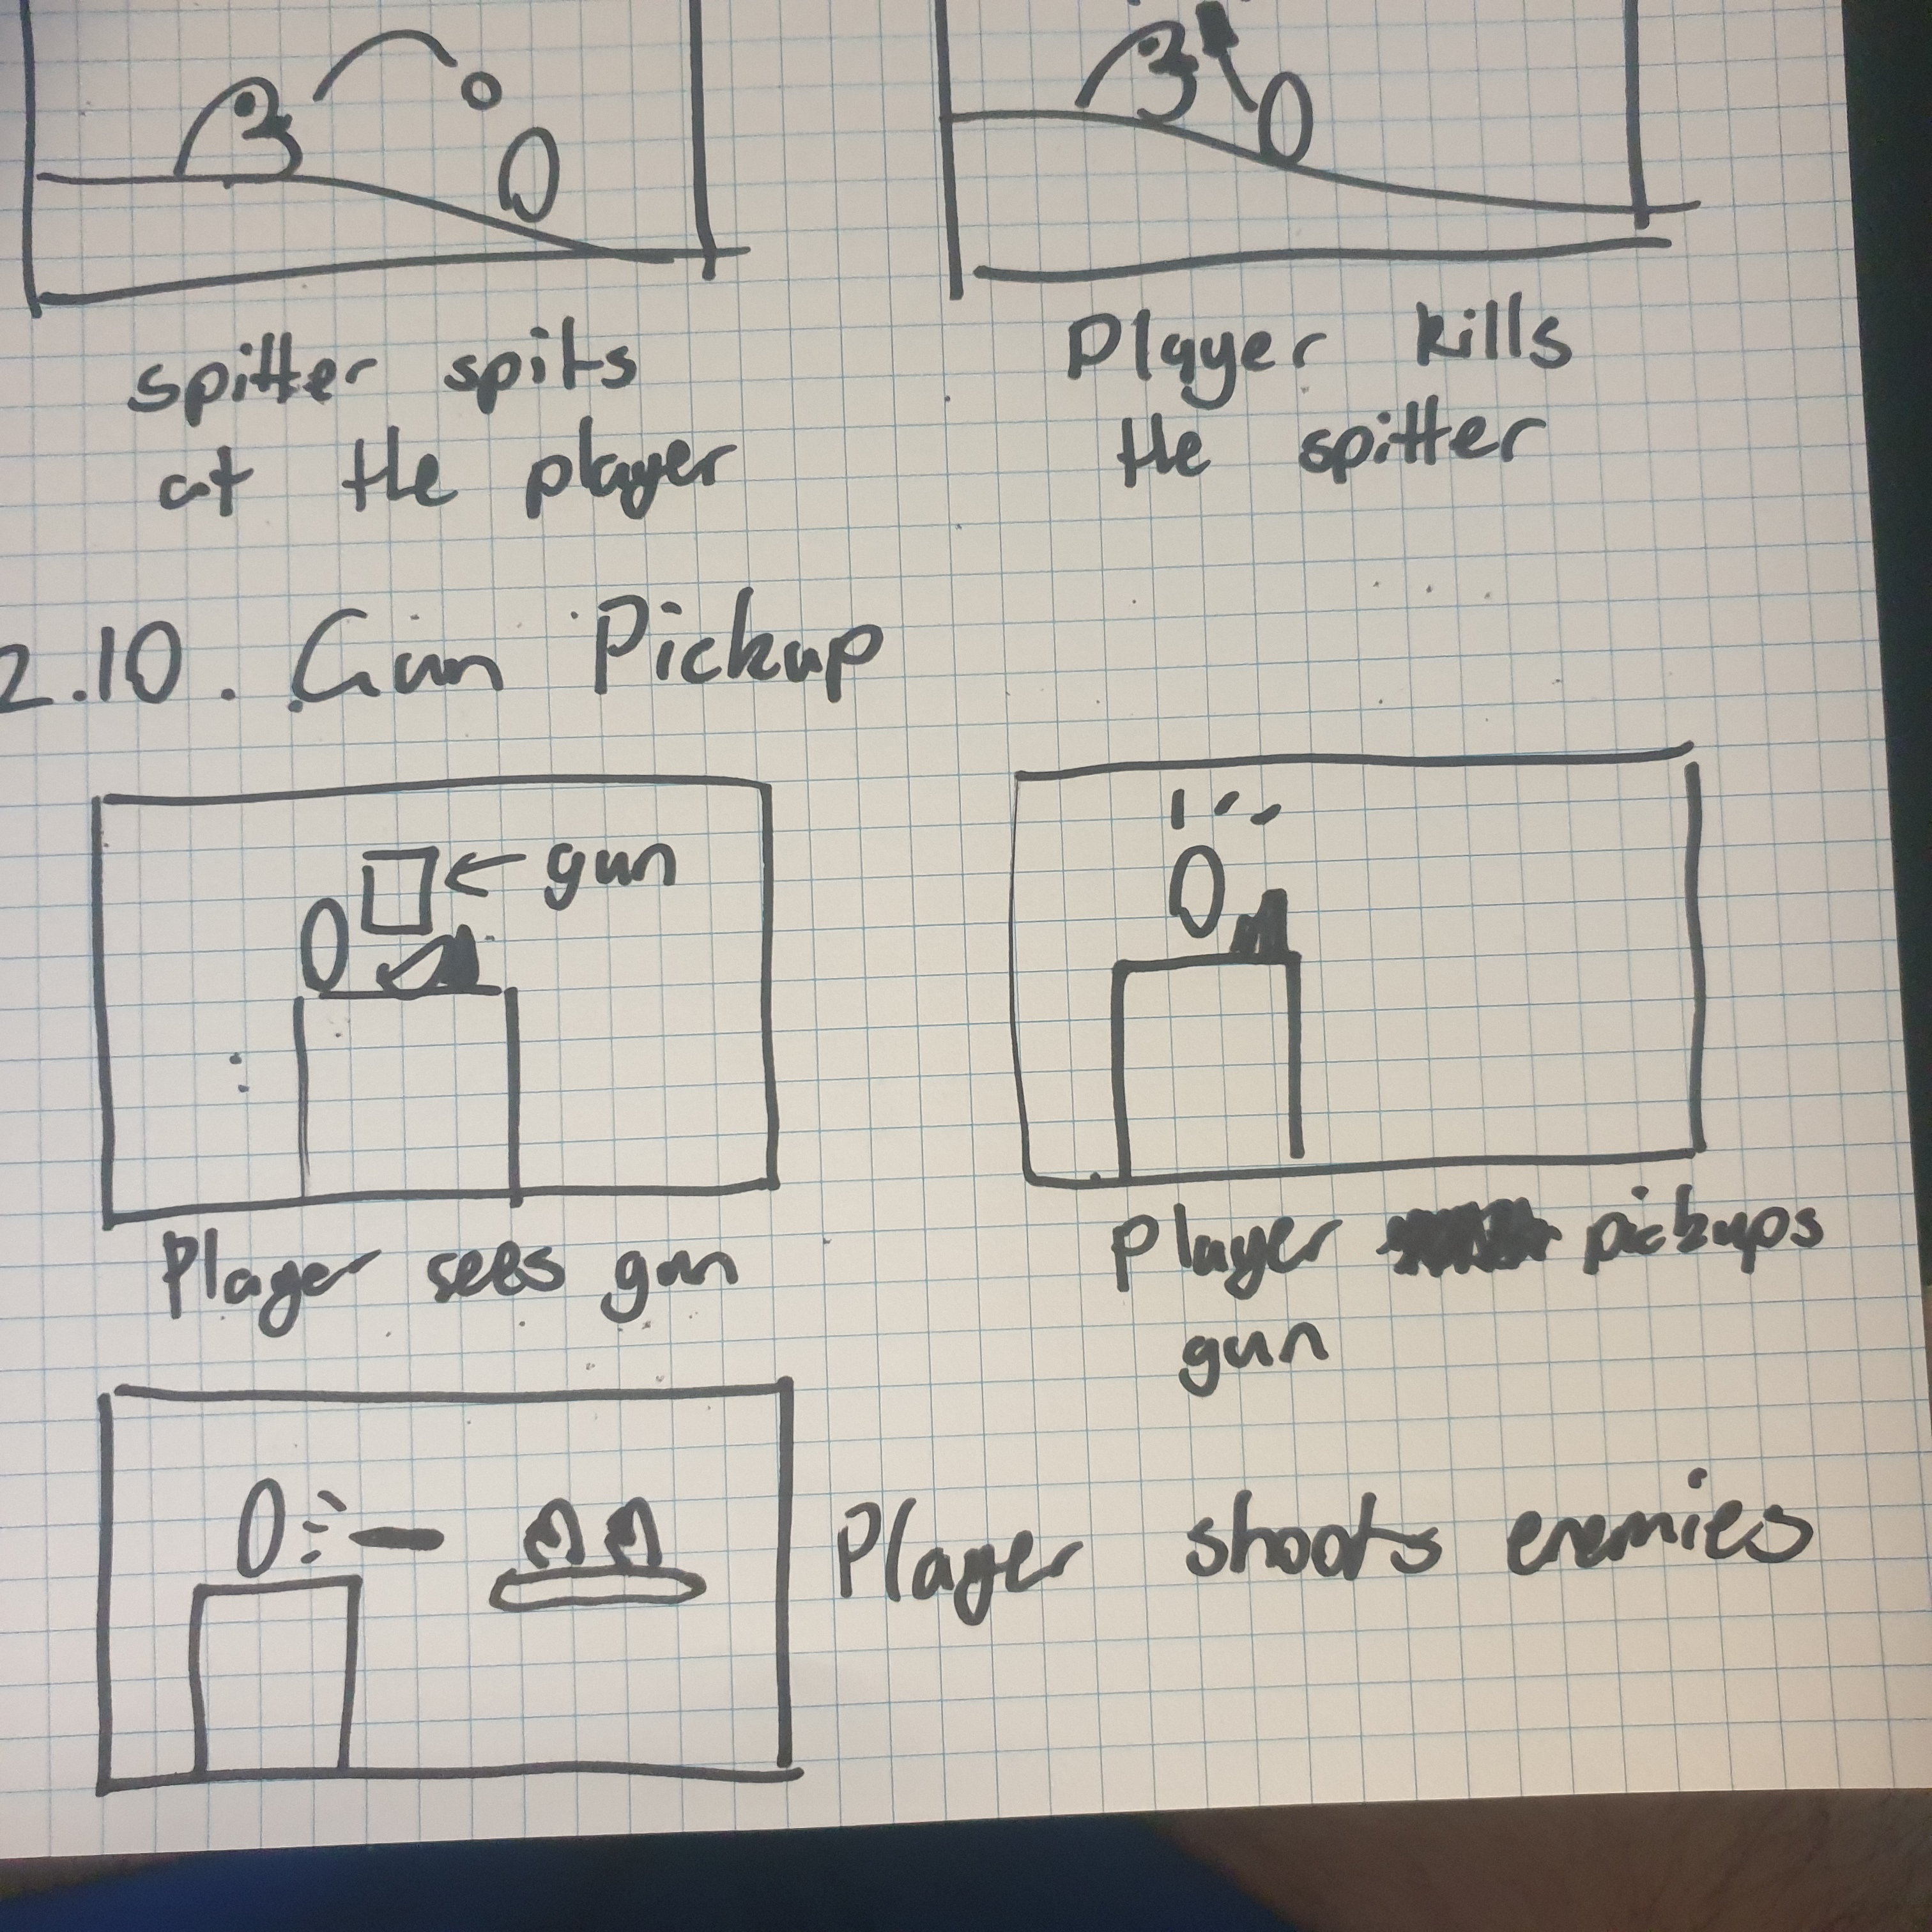 spitter spits
at the player
Player kills
the spitter
2.10. Gun Pickup
← gun
Player sees gun
Player pickups
gun
Player shoots enemies